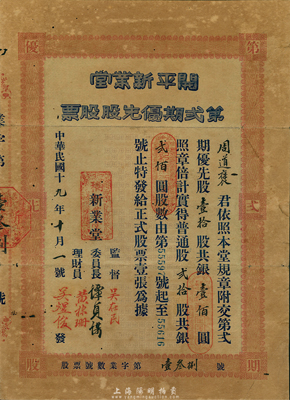 開平新業堂
第弍期優先股股票
周道襃君依照本堂規章附交第弍
期優先股壹拾股共銀壹佰圓
照章倍計實得普通股弍拾股共銀
弍佰圓股數由第55597號起至55616
號止特發給正式股票壹張為據
新業堂
監督
委員長
理財員
發
中華民國十九年十月一號
第業字數號股票
壹叁捌號
優
先
股
第
弍
期
上海陽明拍賣